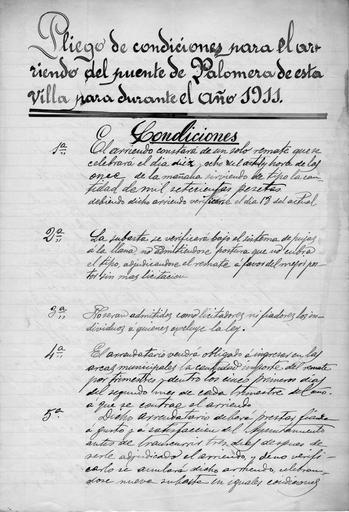 Pliego de condiciones para el ar-
riendo del puente de Palomera de esta
Villa para durante el año 1911.
Condiciones
1ª El arriendo constará de un solo remate que se
celebrará el día diez y ocho del actual y hora de las
once de la mañana sirviendo de tipo la can-
tidad de mil setecientas pesetas
debiendo dicho arriendo verificarse el día 13 del actual
2ª La subasta se verificará bajo el sistema de pujas
á la llana, no admitiendose postura que no cubra
el tipo, adjudicandose el remate á favor del mejor pos-
tor sin mas licitacion
3ª No seran admitidos como licitadores ni fiadores los in-
dividuos á quienes excluye la ley.
4ª El arrendatario vendrá obligado á ingresar en las
arcas municipales la cantidad importe del remate
por trimestres y dentro los cinco primeros dias
del segundo mes de cada trimestre del año
a que se contrae el arriendo
5ª Dicho arrendatario deberá prestar fianza
á gusto y á satisfaccion del Ayuntamiento
antes de trascurrir tres dias despues de
serle adjudicado el arriendo, y de no verifi-
carlo se anulará dicho arriendo, celebran-
dose nueva subasta en iguales condiciones